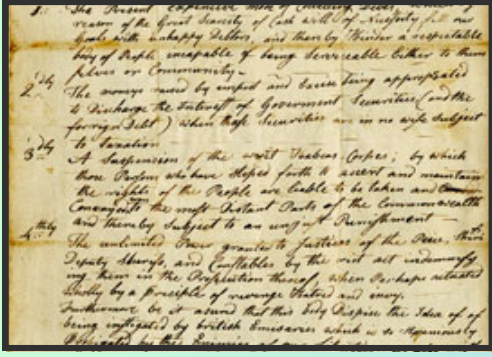 1. The Present expencive mode of Collecting Debts, which by
reason of the Great Scarcity of Cash will of Necessity fill our
Goals with unhappy Debtors, and thereby Hinder a respectable
body of People incapable of being Serviceable Either to them
selves or Community—
2dly The moneys raised by impost and Excise being appropriated
to Discharge the Interest of Goverment Securities (and the
forreign Debt) when these Securities are in no wise Subject
to taxation
3dly A Suspension of the writ Habeas Corpus; by which
those Persons who have Steped forth to assert and maintain
the rights of the People are liable to be taken and
Conveyed to the most Distant Parts of the Commonwealth
and thereby Subject to an unjust Punishment—
4thly The unlimited Power granted to Justices of the Peace,
Deputy Sheriffs, and Constables by the riot act indemnify
ing them in the Prosecution thereof, when Perhaps actuated
wholly by a principle of revenge Hatred and envy.
Furthermore be it that this body Dispise the Idea of of
being instigated by british Emissaries which is so
by the Enemies of